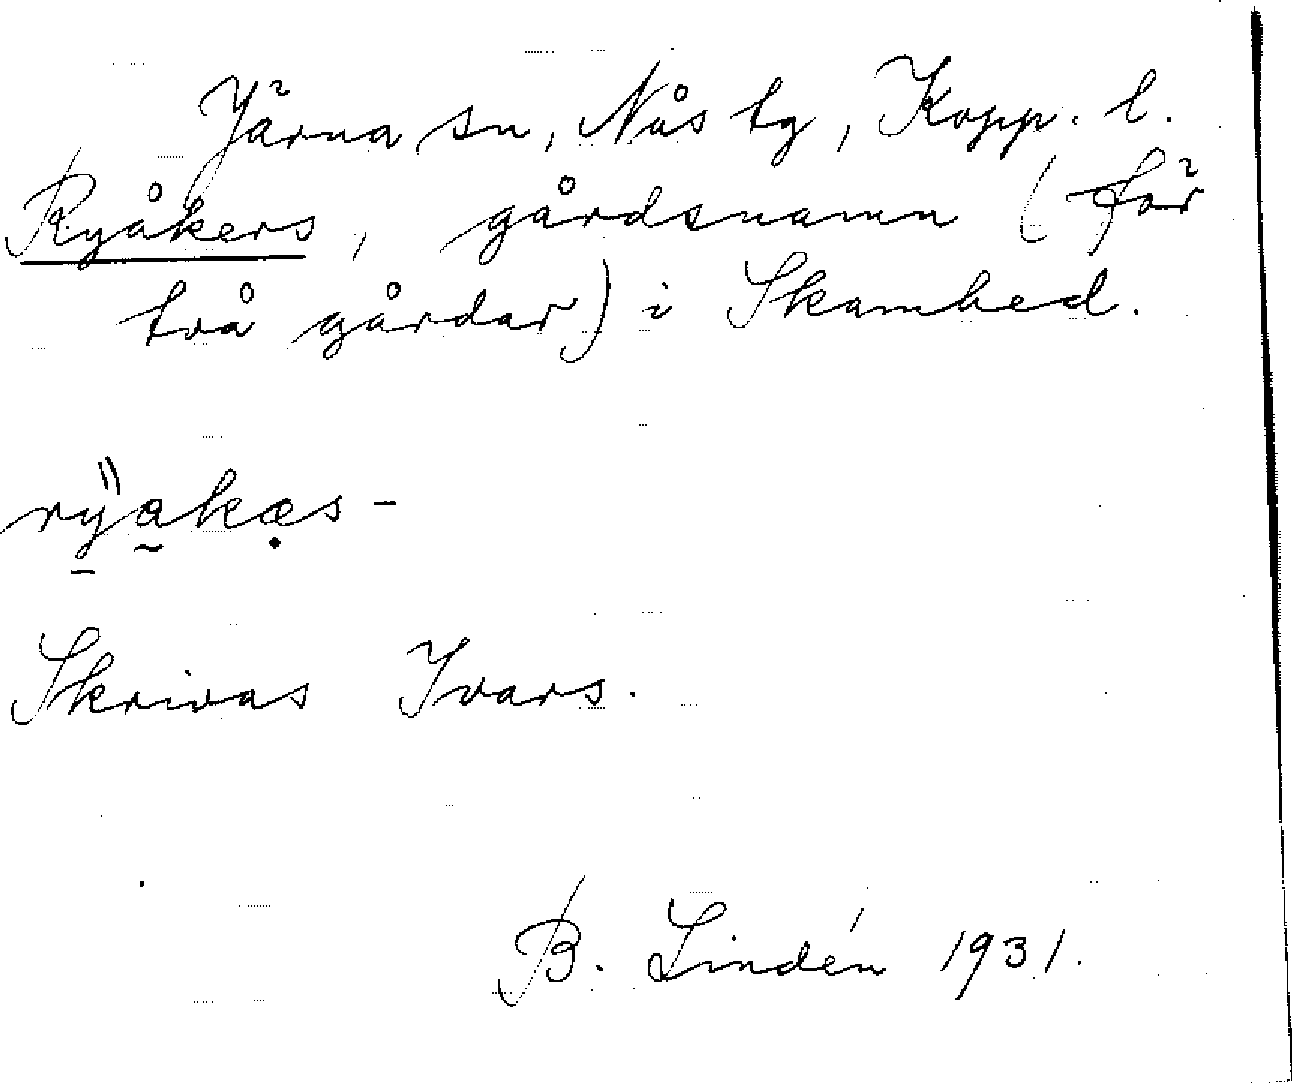 Järna sn, Nås tg, Kopp. l.
Ryåkers, gårdsnamn (för
två gårdar) i Skamhed.
rÿ̱a̰kæ̣s-
Skrivas Ivars.
B. Lindén 1931.